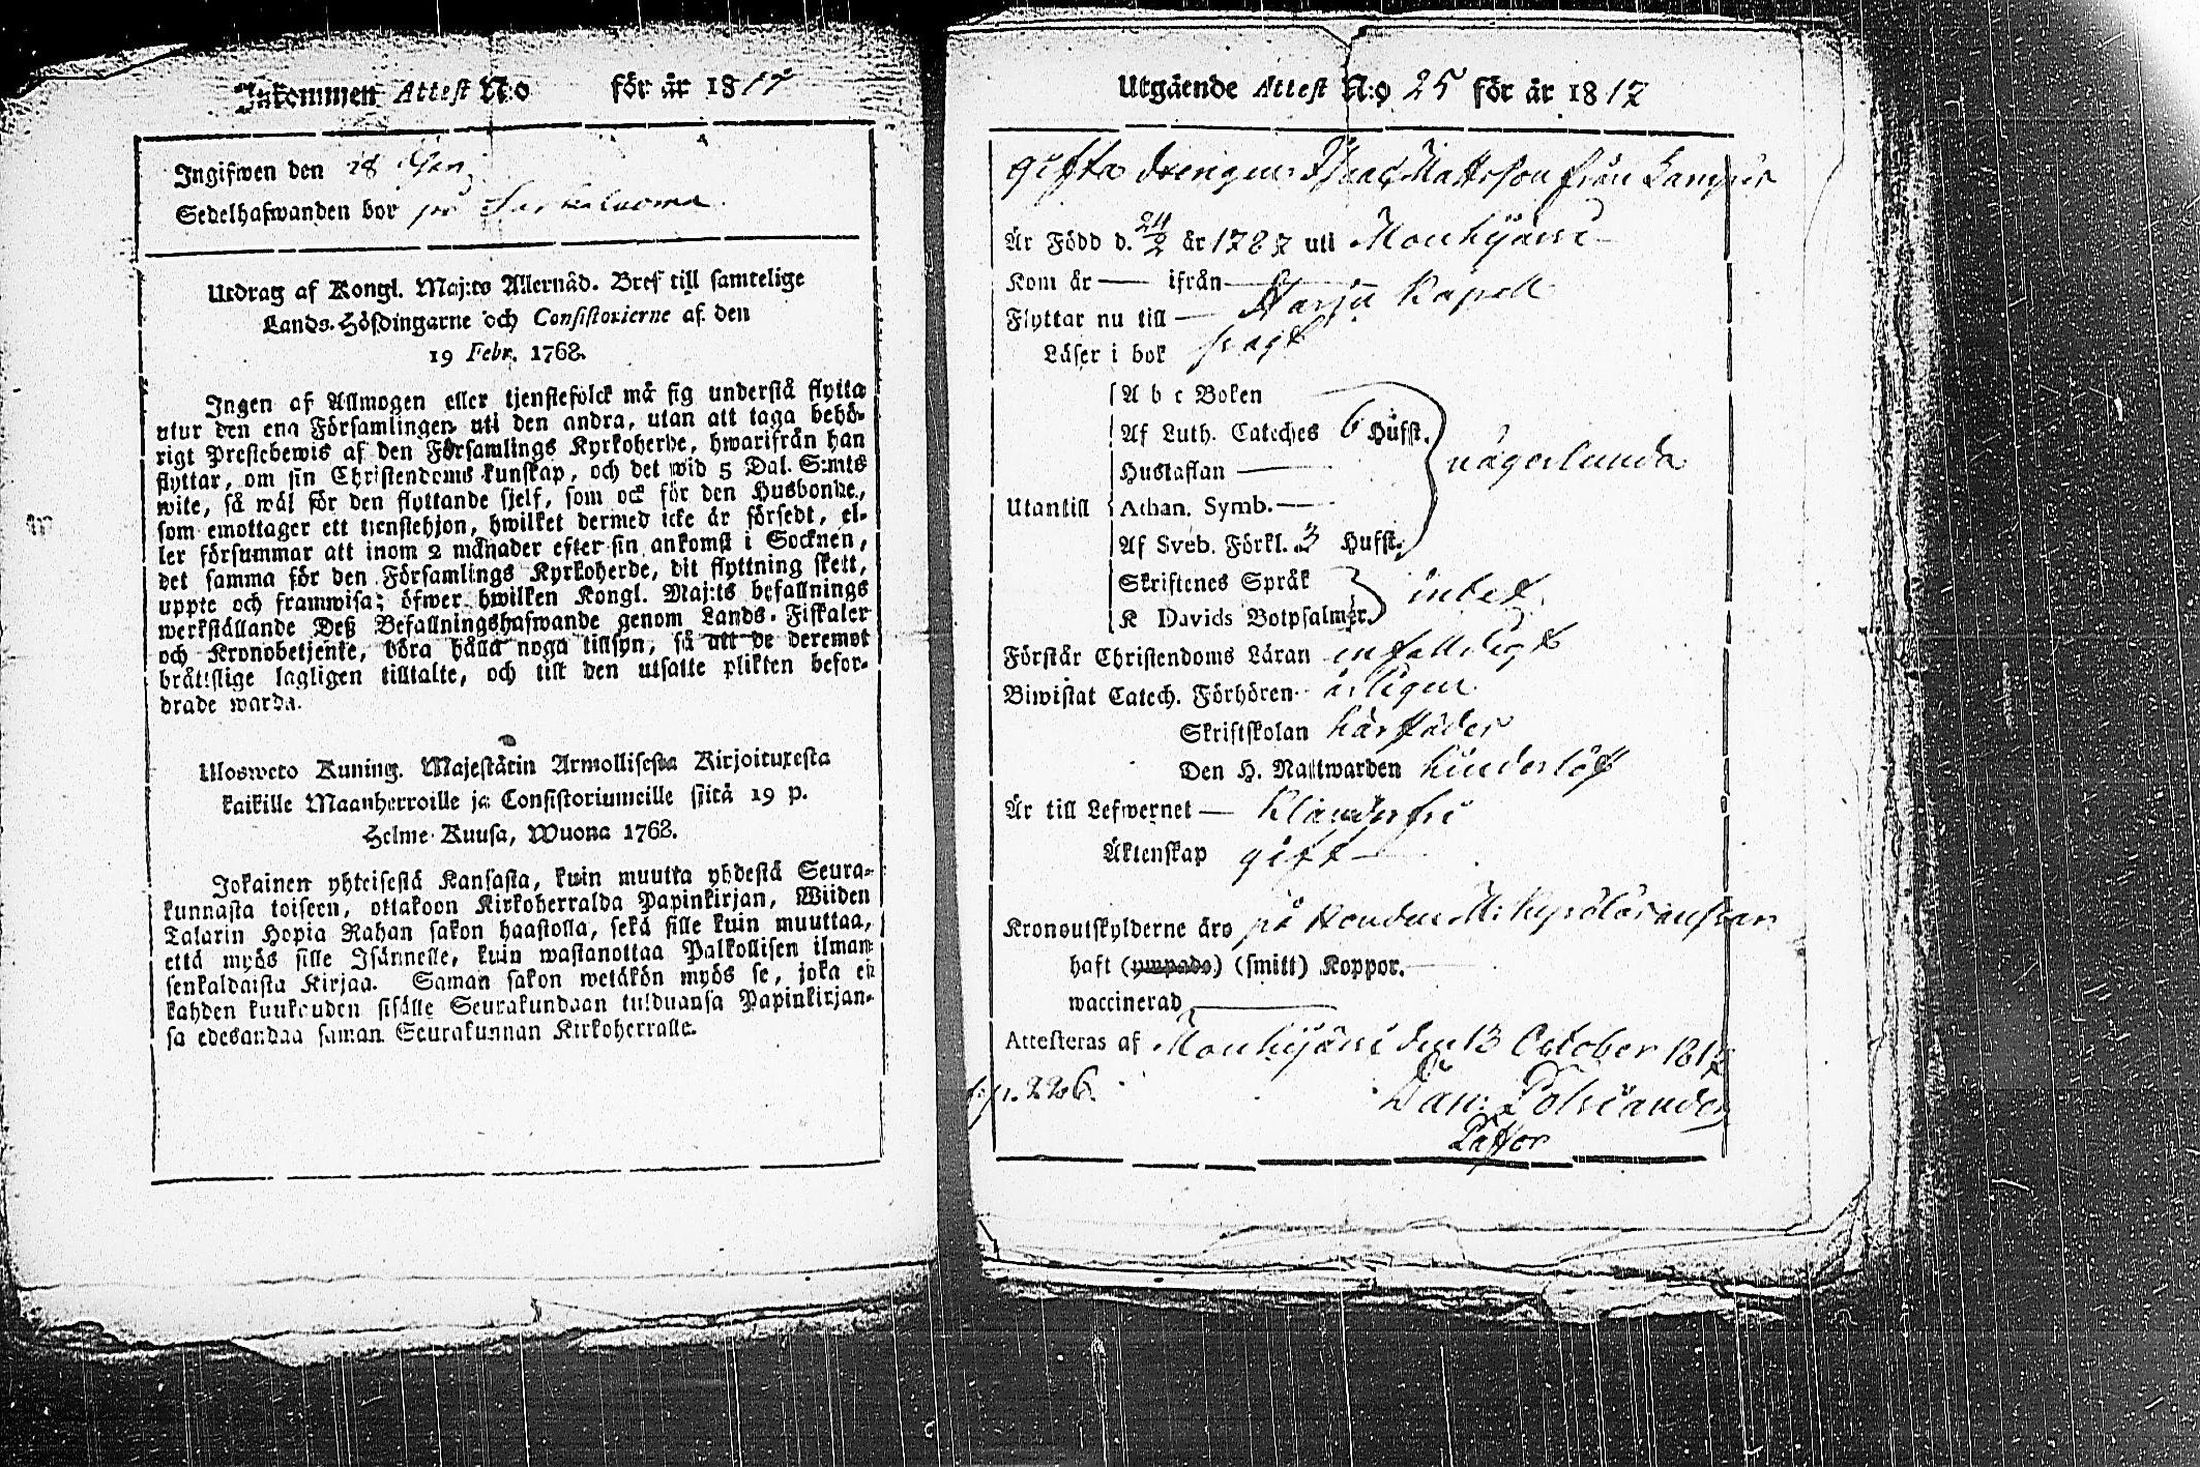 Inkommen Attest N:o för år 1817
Ingifwen den 28
Sedelhafwanden bor på
Utdrag af Kongl. Maj:ts Allernåd. Bref till samtelige
Lands-Höfdingarne och Consistorierne af den
19 Febr. 1768.
Ingen af Allmogen eller tjenstefolck må sig understå flytta
utur den ena Församlingen uti den andra, utan att taga behö-
rigt Prestebewis af den Församlings Kyrkoherde, hwarifrån han
flyttar, om sin Christendoms kunskap, och det wid 5 Dal. S:mts
wite, så wäl för den flyttande sjelf, som ock för den Husbonde,
som emottager ett tjenstehjon, hwilket dermed icke är försedt, el-
ler försummar att inom 2 månader efter sin ankomst i Socknen,
det samma för den Församlings Kyrkoherde, dit flyttning skett,
uppte och framwisa; öfwer hwilken Kongl. Maj:ts befallnings
werkställande Deß Befallningshafwande genom Lands-Fiskaler
och Kronobetjente, böra hålla noga tillsyn, så att de deremot
bråttslige lagligen tilltalte, och till den utsatte plikten befor-
drade warda.
Ulosweto Kuning. Majestätin Armollisesta Kirjoituxesta
kaikille Maanherroille ja Consistoriumeille siitä 19 p.
Helme-Kuusa, Wuona 1768.
Jokainen yhteisestä Kansasta, kuin muutta yhdestä Seura-
kunnasta toiseen, ottakoon Kirkoherralda Papinkirjan, Wiiden
Talarin Hopia Rahan sakon haastolla, sekä sille kuin muuttaa,
että myös sille Isännelle, kuin wastanottaa Palkollisen ilman
senkaldaista Kirjaa. Saman sakon wetäkön myös se, joka ei
kahden kuukauden sisälle Seurakundaan tulduansa Papinkirjan-
sa edesandaa saman Seurakunnan Kirkoherralle.
Utgående Attest N:o 25 för år 1817
gifta drengen Isaac Mattsson från
Är Född d. 24/2 år 1787 uti Mouhijärvi
Kom år — ifrån —
Flyttar nu till — Harju Kapell
Läser i bok svagt
Abc Boken
Af Luth. Cateches 6 Hufst.
Hustaflan — någorlunda
Utantill Athan. Symb. —
Af Sveb. Förkl. 3 Hufst.
Skriftenes Språk
K Davids Botpsalmer. intet
Förstår Christendoms Läran enfalldigt
Biwistat Catech. Förhören årligen
Skriftskolan härstädes
Den H. Nattwarden hinderlöst
Är till Lefwernet — Klanderfri
Äktenskap gift —
Kronoutskylderne äro på
haft (ympade) (smitt) Koppor. —
waccinerad —
Attesteras af Mouhijärvi den 13 October 1817
p. 226.
Dan:
Pastor